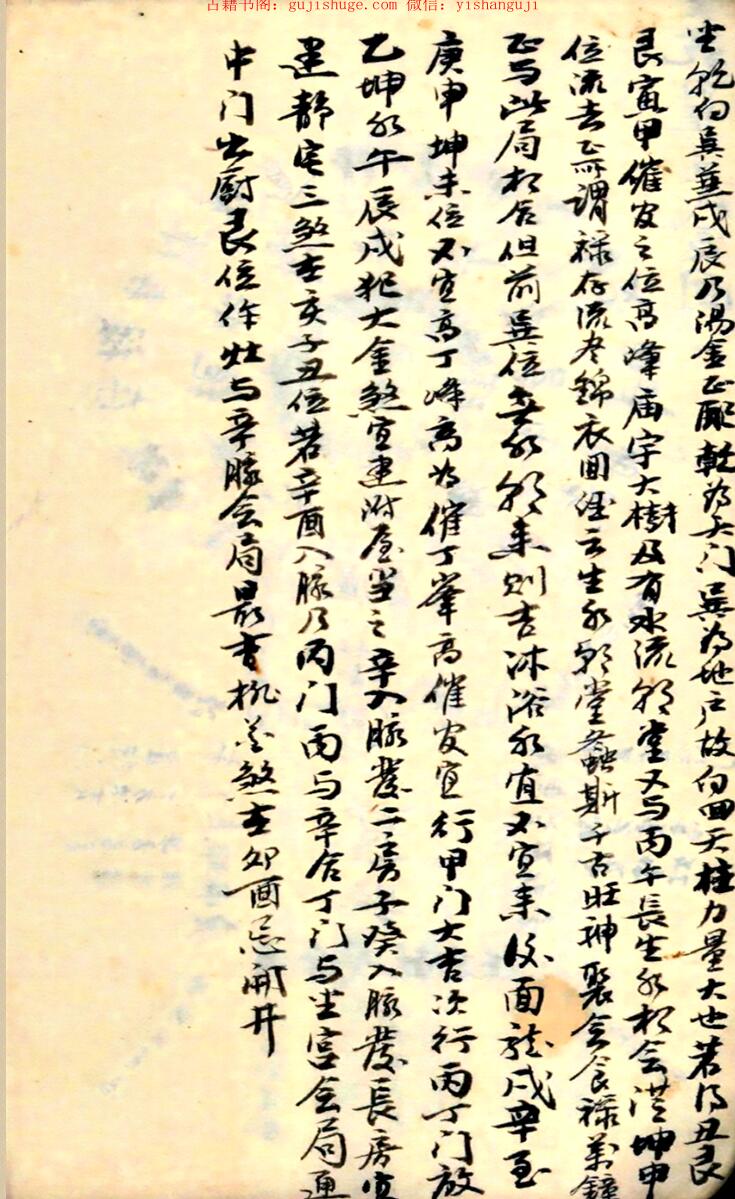 古籍书阁:gujishuge.com 微信:yishanguji
坐乾向巽兼戌辰乃汤金正配乾为天门巽为地户故向四天柱力量大也若得丑艮
艮寅甲催官之位高峰庙宇大樹及有水流朝堂又与丙午長生水相会従坤申
位流去正所谓禄存流尽錦衣回经云生水朝堂螽斯千古旺神聚会食禄萬鐘
正与此局相合但前巽位无水朝来则吉沐浴水宜不宜来後面龙戌辛至
庚申坤未位不宜高丁峰高为催丁峯高催官宜行甲门大吉次行丙丁门放
乙坤水午辰戌犯大金煞宜建附屋當之辛入脉發二房子癸入脉發長房宜
建静宅三煞在亥子丑位若辛酉入脉乃丙门丙与辛合丁门与坐宫会局連
中门出厨艮位作灶与辛脉会局最吉桃花煞在卯酉忌開井